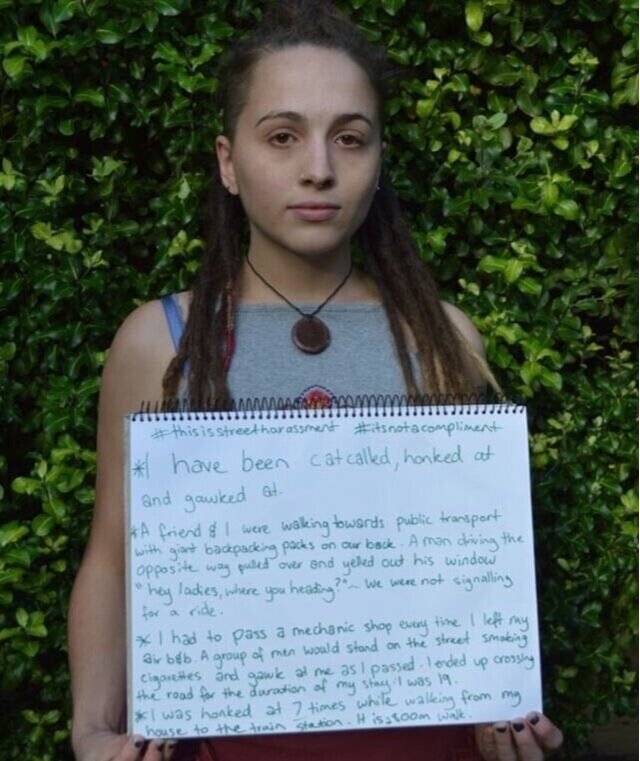 #thisisstreetharassment #itsnotacompliment
* I have been catcalled, honked at
and gawked at.
* A friend & I were walking towards public transport
with giant backpacking packs on our back. A man driving the
opposite way pulled over and yelled out his window
"hey ladies, where you heading?" ~ We were not signalling
for a ride.
* I had to pass a mechanic shop every time I left my
air b&b. A group of men would stand on the street smoking
cigarettes and gawk at me as I passed. I ended up crossing
the road for the duration of my stay. I was 19.
* I was honked at 7 times while walking from my
house to the train station. It is 800m walk.